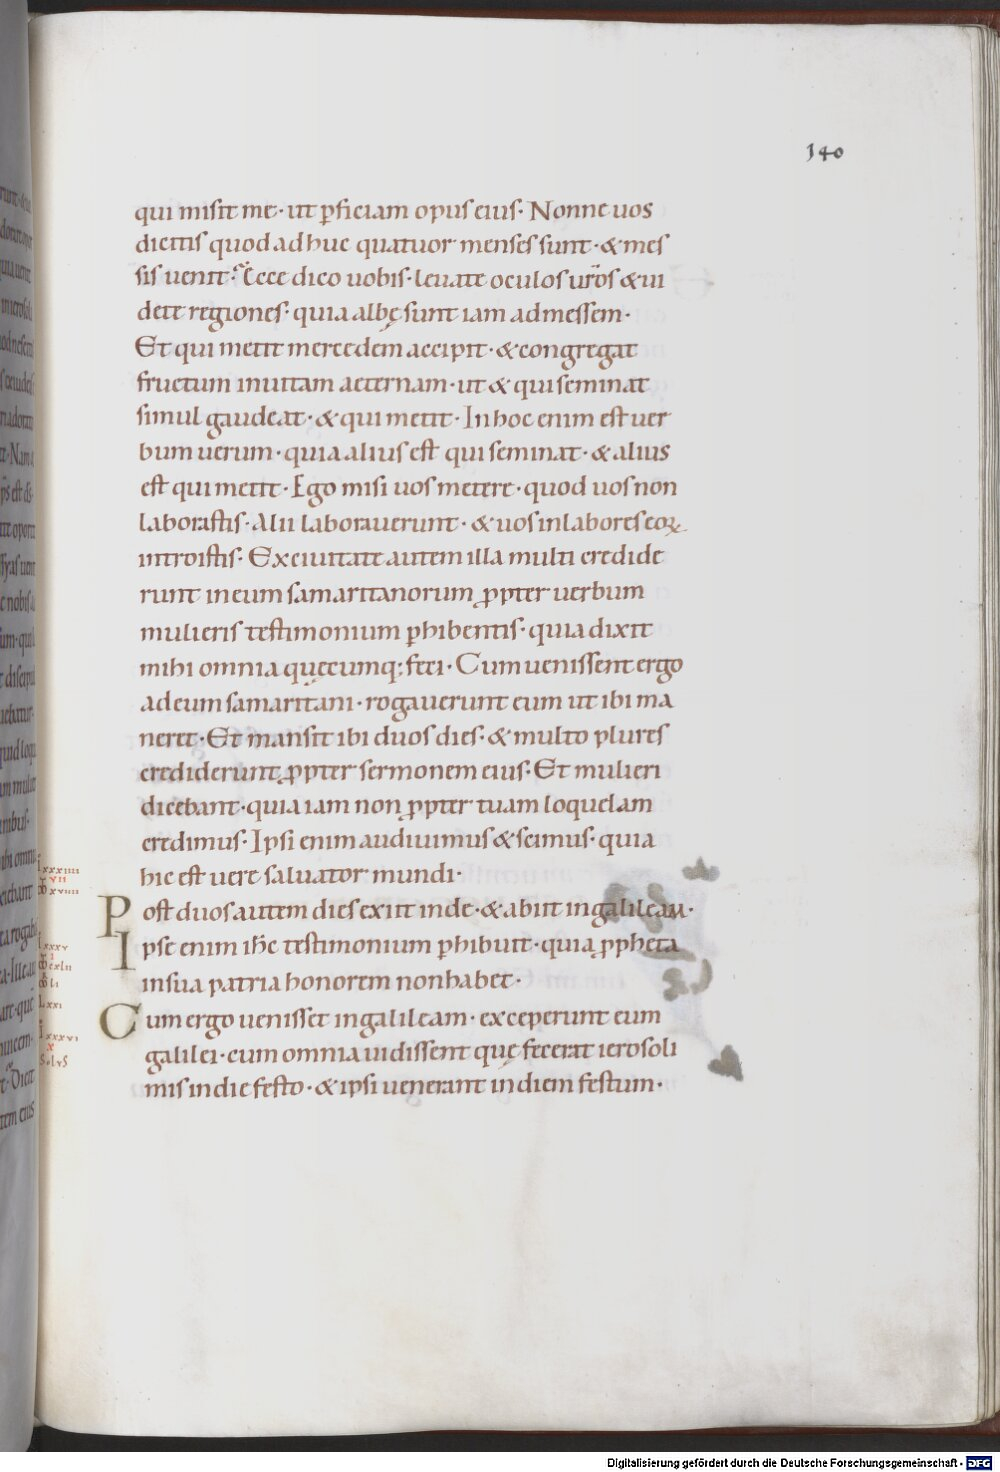 140
qui misit me· ut ꝑficiam opus eius· Nonne uos
dicitis quod adhuc quatuor menses sunt· & mes
sis uenit· Ecce dico uobis· leuate oculos ur̄os & ui
dete regiones· quia albę sunt iam ad messem·
Et qui metit mercedem accipit· & congregat
fructum in uitam aeternam· ut & qui seminat
simul gaudeat· & qui metit· In hoc enim est uer
bum uerum· quia alius est qui seminat· & alius
est qui metit· Ego misi uos metere· quod uos non
laborastis· Alii laborauerunt· & uos in labores eoꝝ
introistis· Ex ciuitate autem illa multi credide
runt in eum samaritanorum ꝓpter uerbum
mulieris testimonium ꝑhibentis· quia dixit
mihi omnia quęcumq; feci· Cum uenissent ergo
ad eum samaritani· rogauerunt eum ut ibi ma
neret· Et mansit ibi duos dies· & multo plures
crediderunt ꝓpter sermonem eius· Et mulieri
dicebant· quia iam non ꝓpter tuam loquelam
credimus· Ipsi enim audiuimus & scimus· quia
hic est uere saluator mundi·
Post duos autem dies exiit inde· & abiit in galileam·
Ipse enim ih̄c testimonium ꝑhibuit· quia ꝓpheta
in sua patria honorem non habet·
Cum ergo uenisset in galileam· exceperunt eum
galilei· cum omnia uidissent quę fecerat ierosoli
mis in die festo· & ipsi uenerant in diem festum·
Digitalisierung gefördert durch die Deutsche Forschungsgemeinschaft - DFG